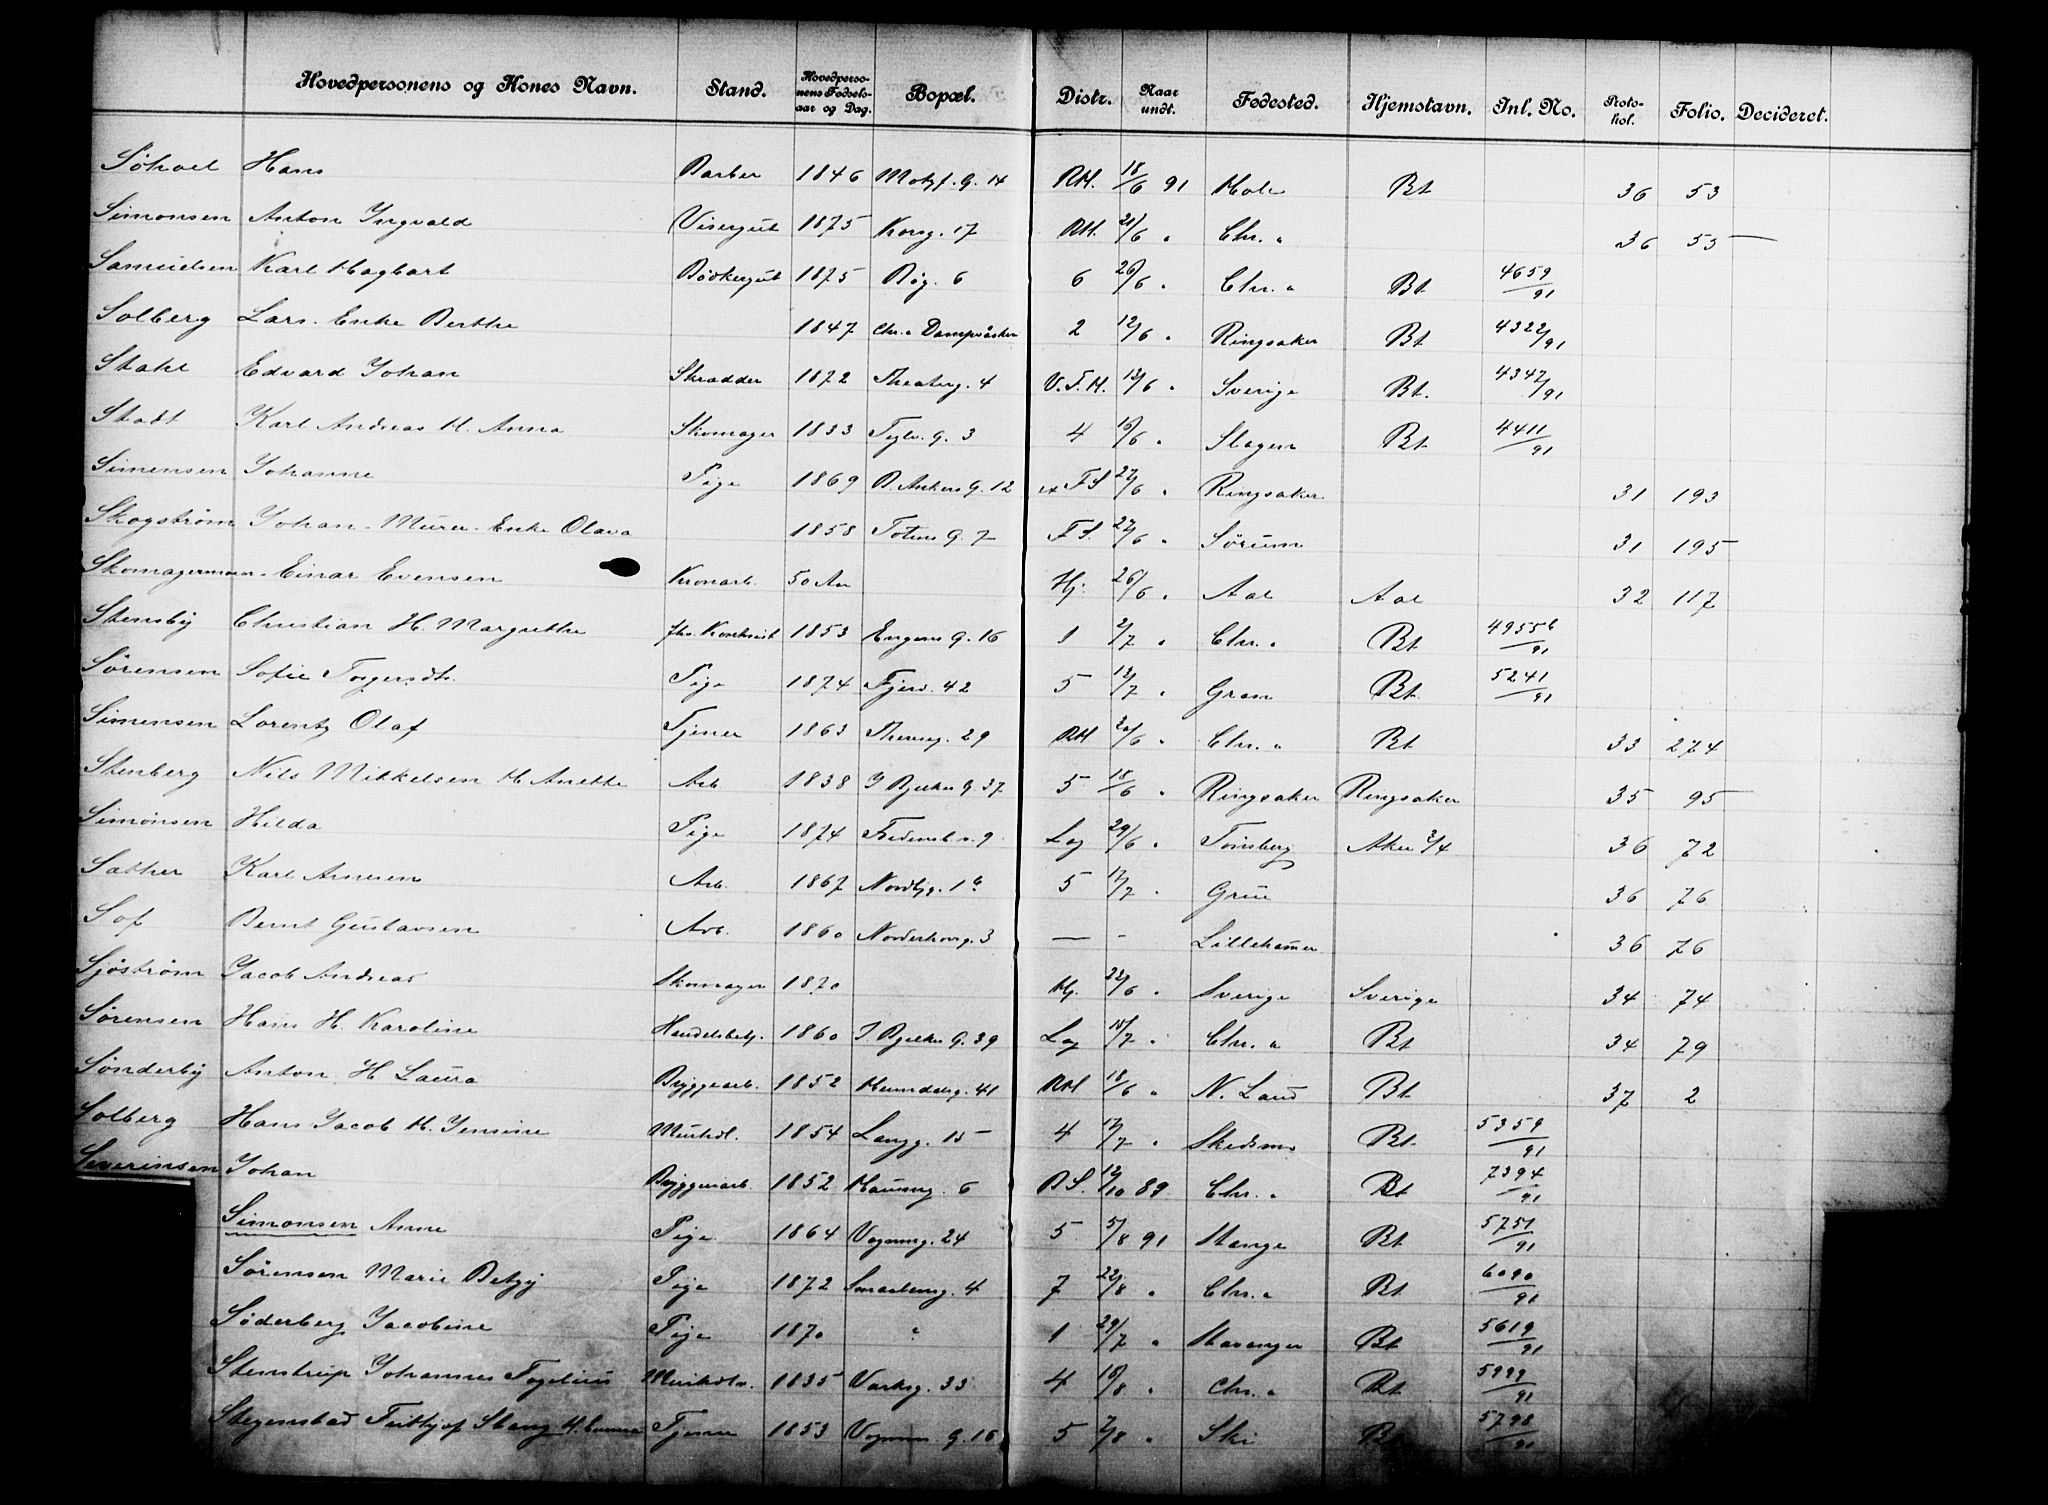 Hovedpersonens og Kones Navn. Stand. Hovedpersonens Fødselsaar og Dag. Bopæl. Distr. Naar undt. Fødested. Hjemstavn. Inl. No. Protokol. Folio. Decideret.
Hans Barber 1846 14 RH. 18/6 91 Hole Bt 36 53
Simonsen Anton Ingvald Visergut 1875 Kongg. 17 RH. 21/6 " Chr.a 36 55 —
Samuelsen Karl Hagbart Bødkergut 1875 Bøg. 6 6 26/6 " Chr.a Bt 4659/91
Solberg Lars. Enke Berthe 1847 Chr.a 2 12/6 " Ringsaker Bt 4322/91
Stahl Edvard Johan Skrædder 1872 Theaterg. 4 V.F.H. 13/6 " Sverige Bt. 4347/91
Stadt Karl Andreas H. Anna Skomager 1833 Teglv. G. 3 4 16/6 " Slagen Bt 4411/91
Simensen Johanne Pige 1869 B. Ankers G. 12 FS 27/6 " Ringsaker 31 193
Skogstrøm Johan - Murer - Enke Olava 1858 Totens G. 7 FS. 27/6 " Sørum 31 195
Skomagermoen - Einar Evensen Kronarb. 50 Aar Hj. 26/6 " Aal Aal 32 117
Stensby Christian H. Margrethe 1853 Engens G. 16 1 2/7 " Chr.a Bt 4955/91
Sørensen Sofie Torgersdtr. Pige 1874 Fjerd. 42 5 13/7 " Gran Bt. 5241/91
Simensen Lorentz Olaf Tjener 1863 Thereseg. 29 RH /6 " Chr.a Bt 33 274
Stenberg Nils Mikkelsen H. Anethe Arb 1838 J Bjelkes G. 37 5 18/6 " Ringsaker Ringsaker 35 95 —
Simonsen Hilda Pige 1874 9 Lag 29/6 " Tønsberg Aker 36 72
Sæther Karl Arnesen Arb. 1867 Nordbyg. 5 17/7 " Grue 36 76
Sof Bernt Gustavsen Arb. 1860 Norderhovg. 3 — - Lillehamer 36 76
Sjøstrøm Jacob Andreas Skomager 1870 Hj. 22/6 " Sverige Sverige 34 74
Sørensen Hans H. Karoline Handelsbetj. 1860 J. Bjelkes G. 39 Lag 15/7 " Chr.a Bt 34 79
Sønderby Anton H Laura Bryggearb. 1852 Heimdalsg. 41 RH 18/6 " N. Land Bt 37 2
Solberg Hans Jacob H. Jensine Murhdl. 1854 Langg. 15 4 17/7 " Skedsmo Bt 5359/91
Severinsen Johan Bryggeriarb. 1852 Hausmg. 6 BS. 12/10 89 Chr.a Bt 7394/91
Simonsen Anne Pige 1864 Vognmg. 24 5 5/8 91 Stange Bt 5751/91
Sørensen Marie Betzy Pige 1872 Smaalensg. 4 7 22/8 " Chr.a Bt 6090/91
Søderberg Jacobine Pige 1870 " 1 29/7 " Stavanger Bt 5619/91
Stenstrup Johannes 1835 33 4 18/8 " Chr.a Bt 5999/91
Stegenstad Frithjof Stang H. Emma Tjener 1853 Vognm. G. 16 5 7/8 " Ski Bt 5798/91